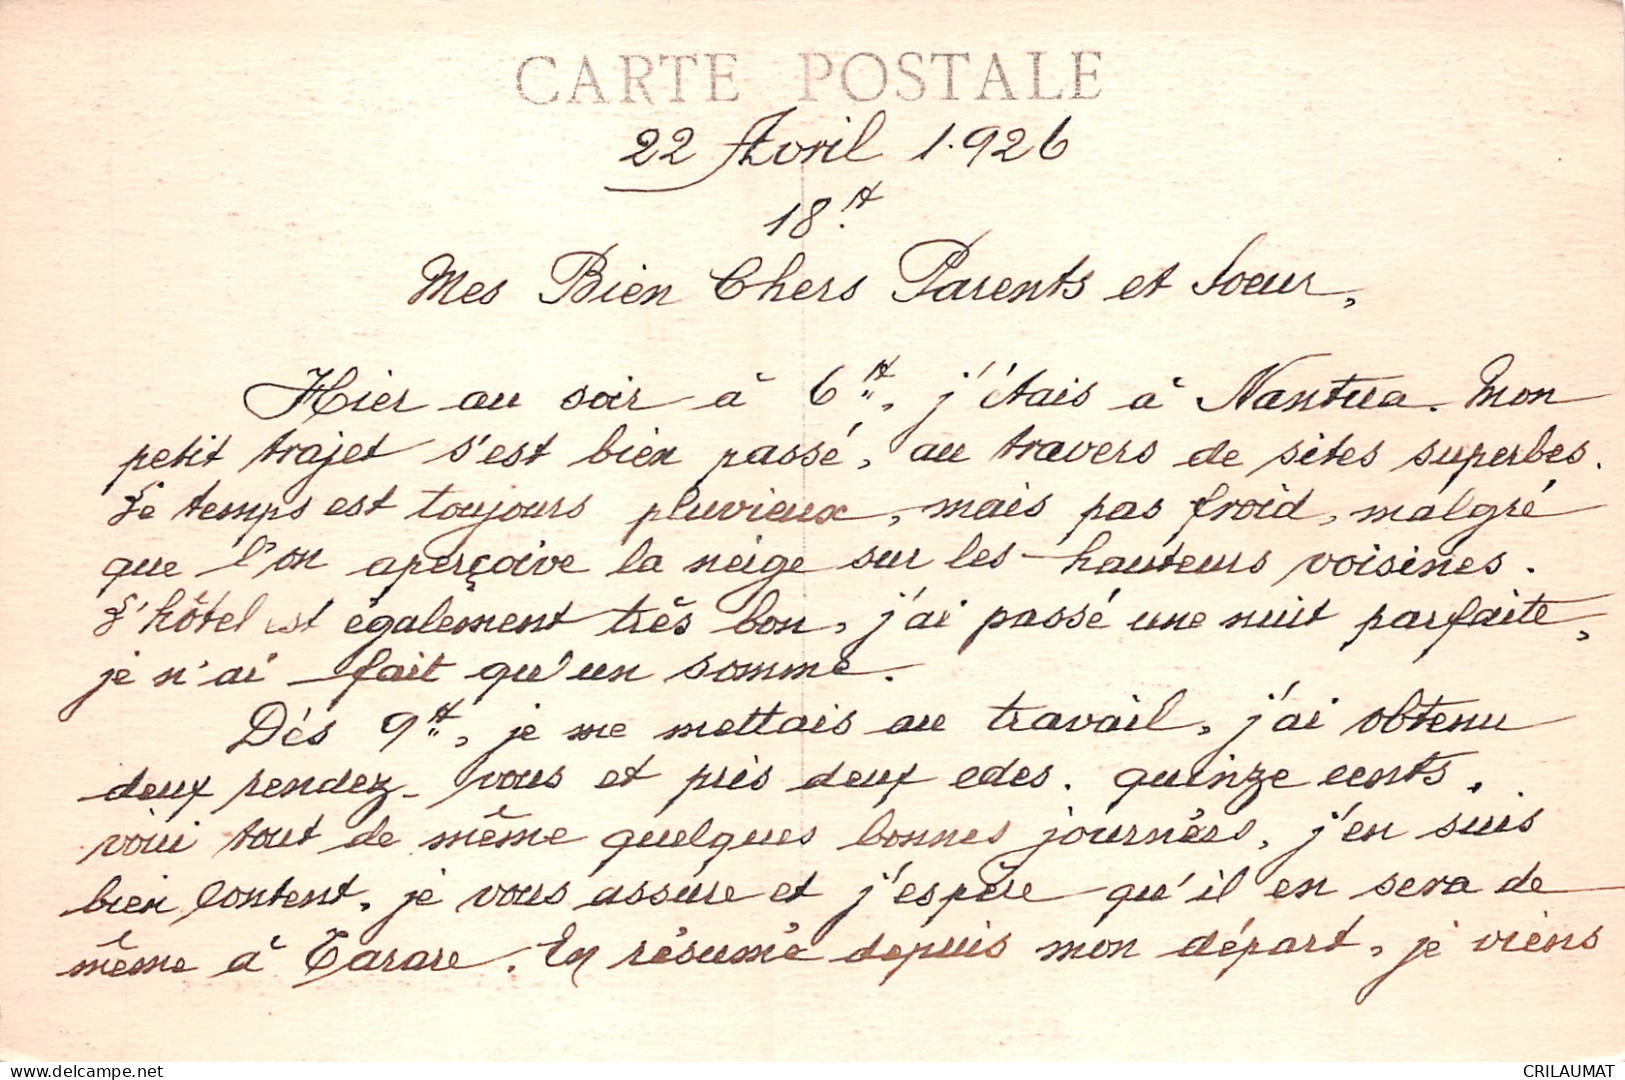 CARTE POSTALE
22 Avril 1.926
18.H
Mes Bien Chers Parents et Soeur,
Hier au soir à 6H, j'étais à Nantua. Mon
petit trajet s'est bien passé, au travers de sites superbes.
Le temps est toujours pluvieux, mais pas froid, malgré
que l'on aperçoive la neige sur les hauteurs voisines.
L'hôtel est également très bon, j'ai passé une nuit parfaite,
je n'ai fait qu'un somme.
Dès 9H, je me mettais au travail, j'ai obtenu
deux rendez-vous et pris deux cdes. quinze cents.
voici tout de même quelques bonnes journées, j'en suis
bien content, je vous assure et j'espère qu'il en sera de
même à Tarare. En résumé depuis mon départ, je viens
www.delcampe.net
CRILAUMAT